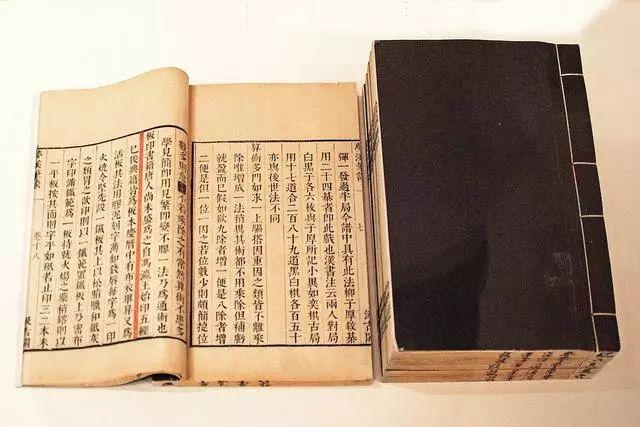 夢溪筆談
彈 發過半局今譜中具有此法柳子厚敘棊
用二十四棊者卽此戲也漢書註云兩人對局
白黑子各六枚與子厚所記小異如奕棋古局
用十七道合二百八十九道黑白棋各百五十
亦與後世法不同
算術多門如求一上驅搭因重因之類皆不離乘
除唯增成一法稍異其術都不用乘除但補虧
就盈而已假如欲九除者增一便是八除者增
二便是但一位一因之若位數少則頗簡捷位
不若乘除之有常然算術不患多
學見簡卽用見繁卽變不膠一法乃爲通術也
板印書籍唐人尚未盛爲之自馮瀛王始印五經
已後典籍皆爲板本慶曆中有布衣畢昇又爲
活板其法用膠泥刻字薄如錢唇每字爲一印
火燒令堅先設一鐵板其上以松脂臘和紙灰
之類冒之欲印則以一鐵範置鐵板上乃密布
字印滿鐵範爲一板持就火煬之藥稍鎔則以
一平板按其面則字平如砥若止印三二本未
夢溪筆談 卷十八 汲古閣